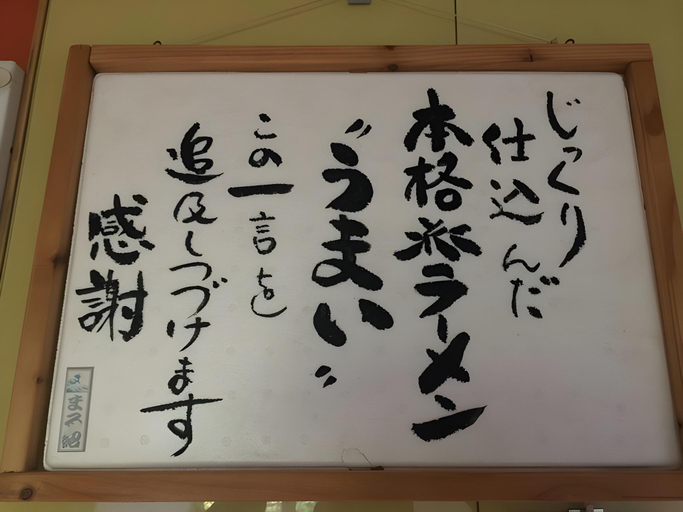 じっくり
仕込んだ
本格派ラーメン
〝うまい〟
この一言を
追及しつづけます
感謝